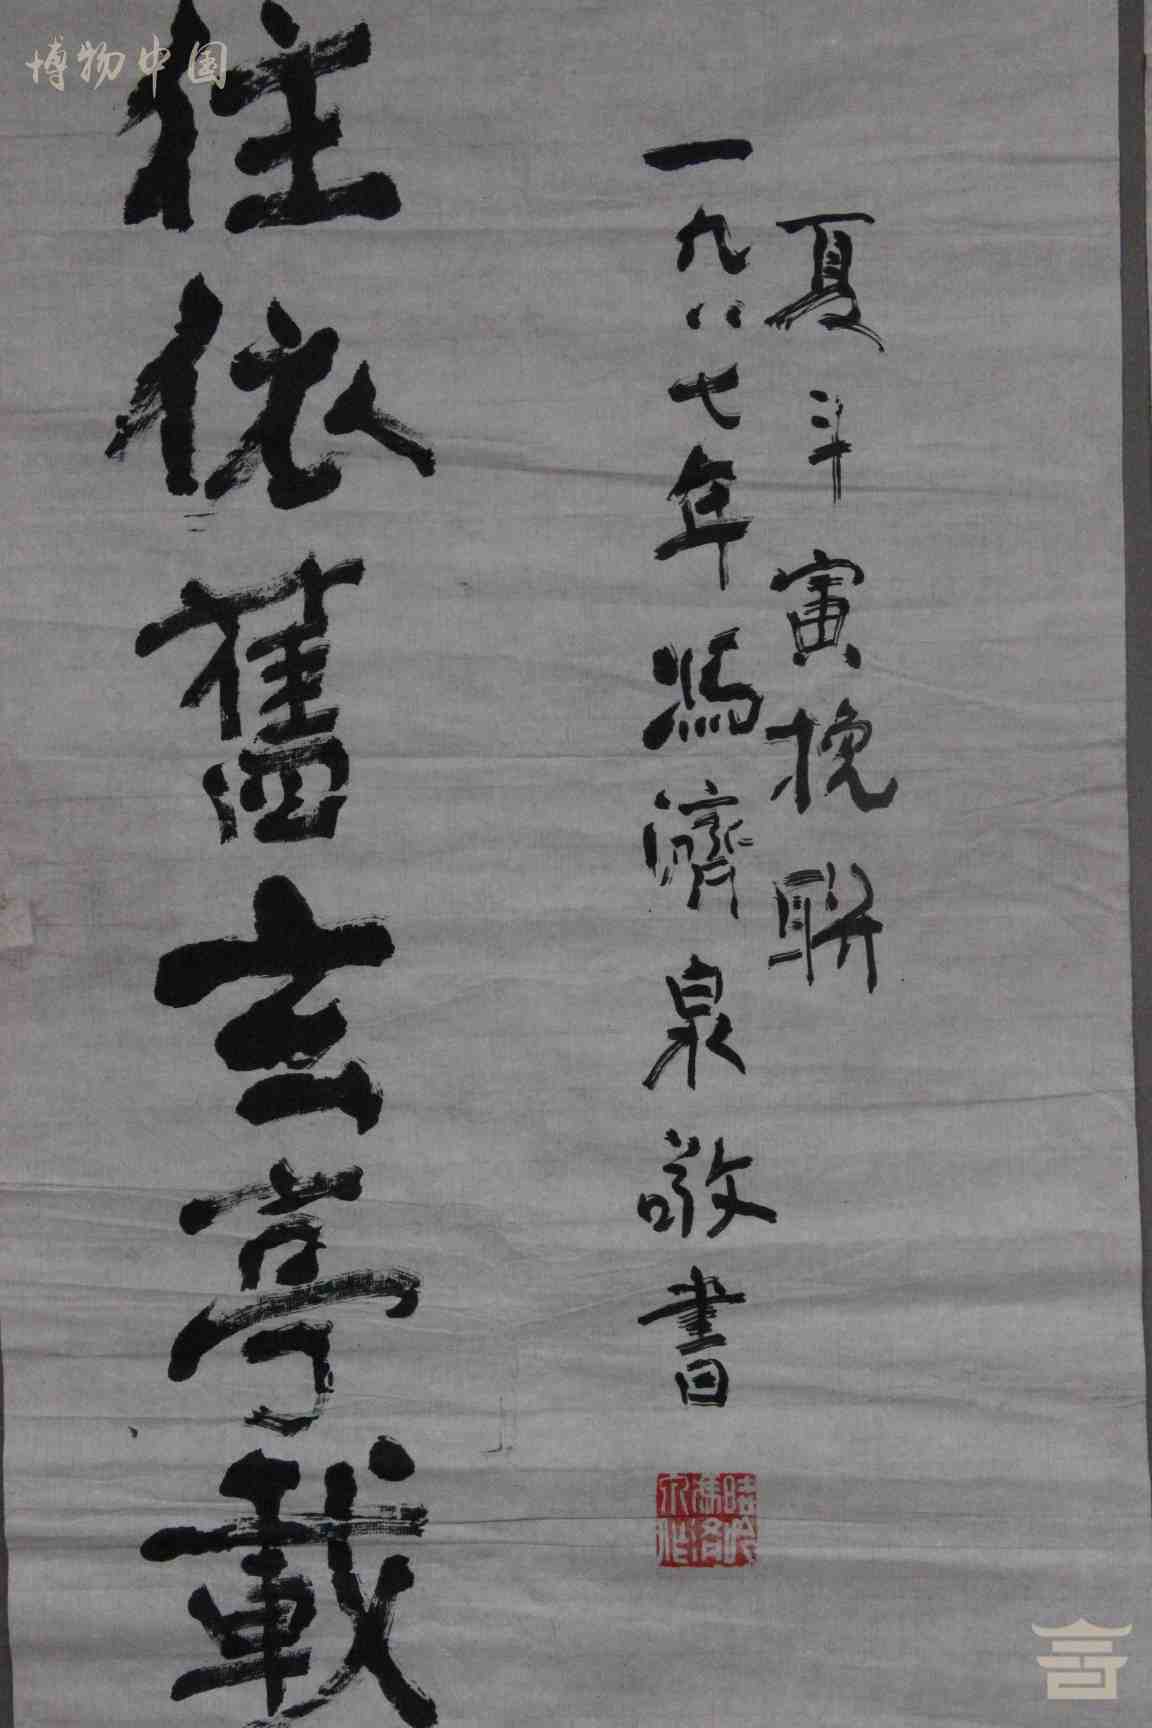 博物中国
夏斗寅挽聯
一九八七年馮濟泉敬書
往依舊玄亭載